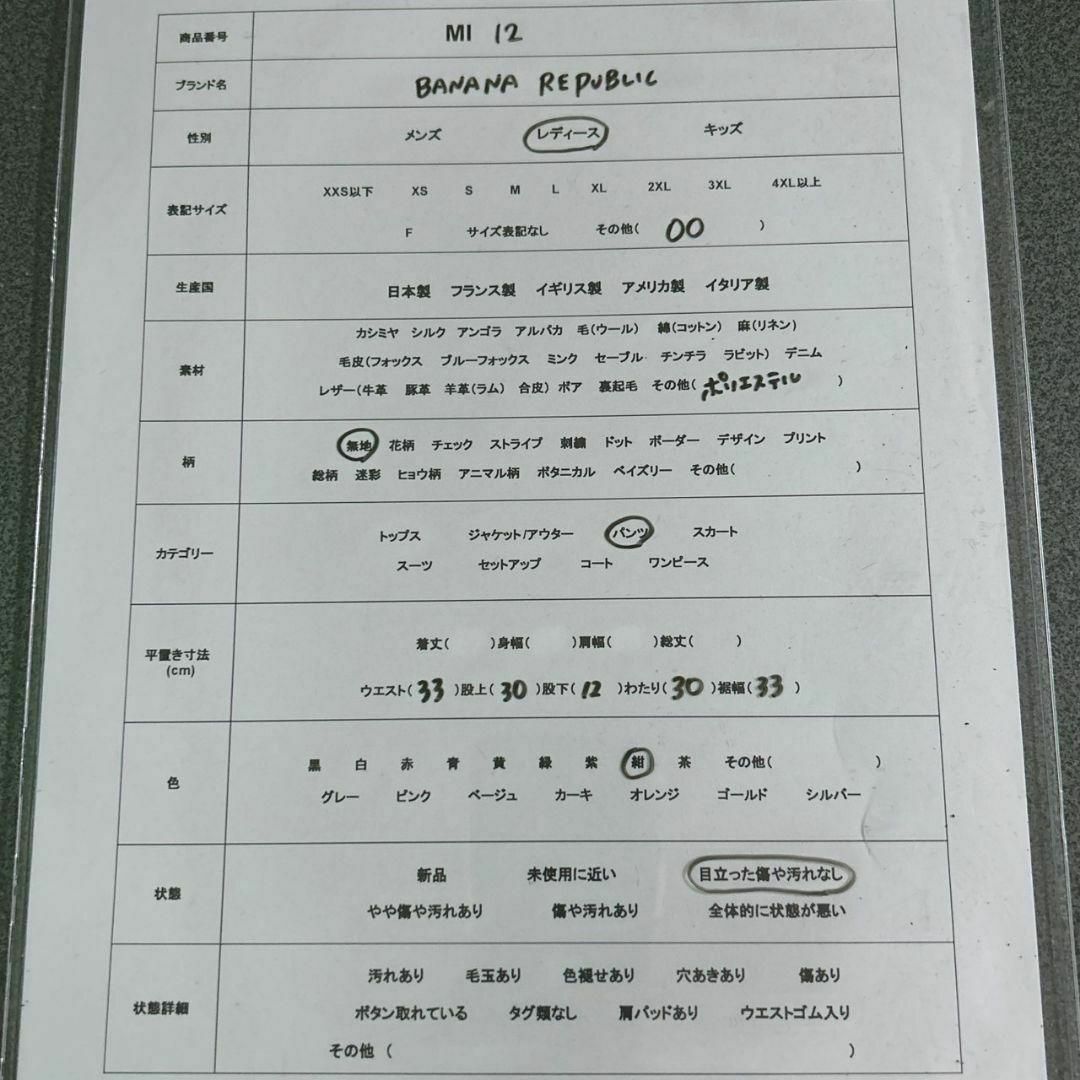 商品番号 MI 12
ブランド名 BANANA REPUBLIC
性別 メンズ レディース キッズ
表記サイズ
XXS以下 XS S M L XL 2XL 3XL 4XL以上
F サイズ表記なし その他( 00 )
生産国 日本製 フランス製 イギリス製 アメリカ製 イタリア製
素材
カシミヤ シルク アンゴラ アルパカ 毛(ウール) 綿(コットン) 麻(リネン)
毛皮(フォックス ブルーフォックス ミンク セーブル チンチラ ラビット) デニム
レザー(牛革 豚革 羊革(ラム) 合皮) ボア 裏起毛 その他( ポリエステル )
柄
無地 花柄 チェック ストライプ 刺繍 ドット ボーダー デザイン プリント
総柄 迷彩 ヒョウ柄 アニマル柄 ボタニカル ペイズリー その他( )
カテゴリー
トップス ジャケット/アウター パンツ スカート
スーツ セットアップ コート ワンピース
平置き寸法
(cm)
着丈( )身幅( )肩幅( )総丈( )
ウエスト( 33 )股上( 30 )股下( 12 )わたり( 30 )裾幅( 33 )
色
黒 白 赤 青 黄 緑 紫 紺 茶 その他( )
グレー ピンク ベージュ カーキ オレンジ ゴールド シルバー
状態
新品 未使用に近い 目立った傷や汚れなし
やや傷や汚れあり 傷や汚れあり 全体的に状態が悪い
状態詳細
汚れあり 毛玉あり 色褪せあり 穴あきあり 傷あり
ボタン取れている タグ類なし 肩パッドあり ウエストゴム入り
その他 ( )